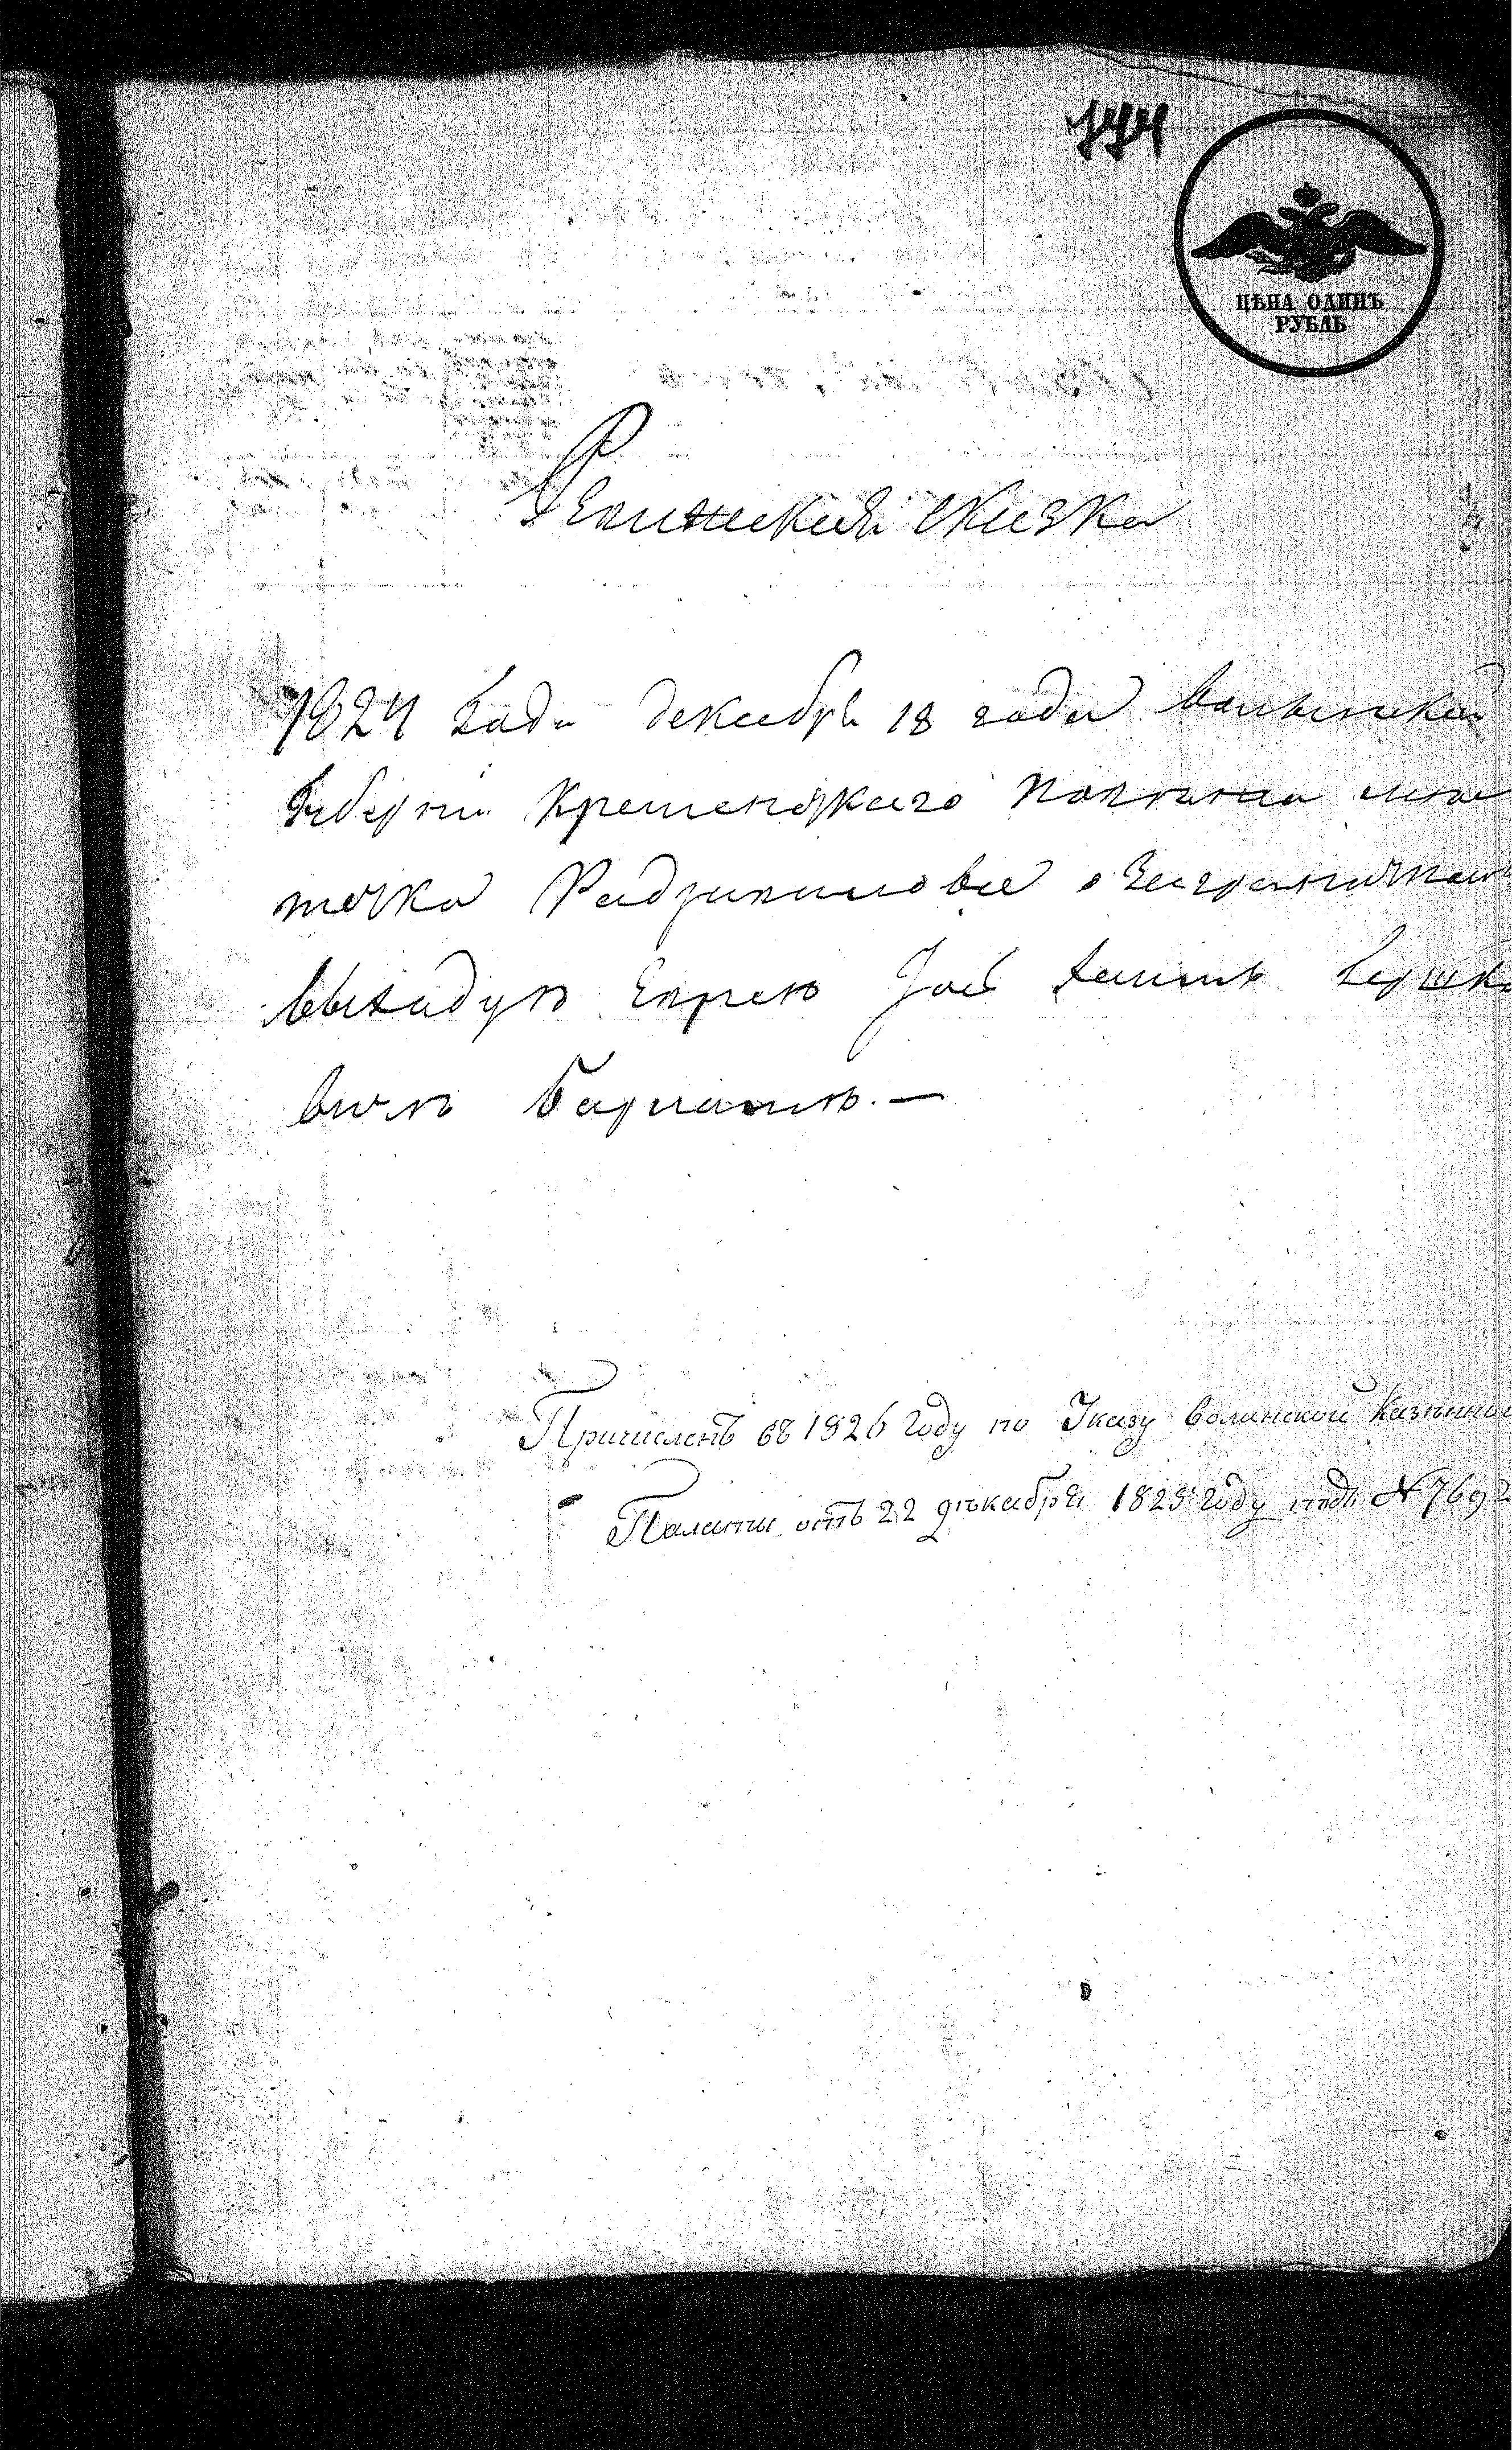 ЦѢНА ОДИНЪ
РУБЛЬ
Ревизская сказка
1824 Года декабря 18 года Волынской
Губерни Кременецкаго Повита мѣс
течка Радзивилова о Заграничном
выходцѣ Еврею
вичь
Причисленъ въ 1826 году по Указу Волинской Казенной
Палаты отъ 22 декабря 1825 году подъ N 7692